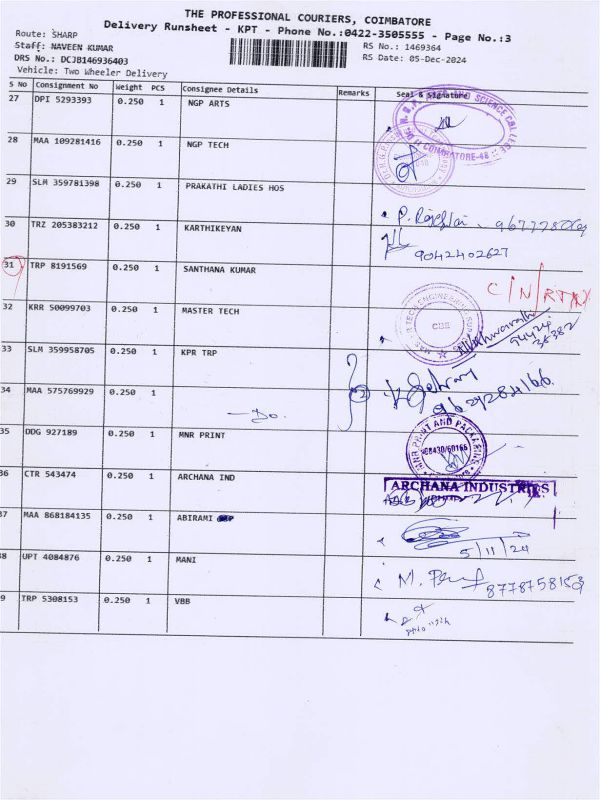 THE PROFESSIONAL COURIERS, COIMBATORE
Delivery Runsheet - KPT - Phone No.:0422-3505555 - Page No.:3
Route: SHARP
Staff: NAVEEN KUMAR
RS No.: 1469364
DRS No.: DCJB146936403
RS Date: 05-Dec-2024
Vehicle: Two Wheeler Delivery
S No Consignment No Weight PCS Consignee Details Remarks Seal & Signature
27 DPI 5293393 0.250 1 NGP ARTS
SCIENCE COLLEGE
COIMBATORE-48
28 MAA 109281416 0.250 1 NGP TECH
29 SLM 359781398 0.250 1 PRAKATHI LADIES HOS
30 TRZ 205383212 0.250 1 KARTHIKEYAN
9042402627
31 TRP 8191569 0.250 1 SANTHANA KUMAR
C/N/RTN
32 KRR 50099703 0.250 1 MASTER TECH
TECH ENGINEERING
CBE
94424
38382
33 SLM 359958705 0.250 1 KPR TRP
34 MAA 575769929 0.250 1
- Do.
9629284166
35 DDG 927189 0.250 1 MNR PRINT
MNR PRINT AND PACKAGING
98430/60166
36 CTR 543474 0.250 1 ARCHANA IND
ARCHANA INDUSTRIES
37 MAA 868184135 0.250 1 ABIRAMI
5/11/24
38 UPT 4084876 0.250 1 MANI
M.
39 TRP 5308153 0.250 1 VBB